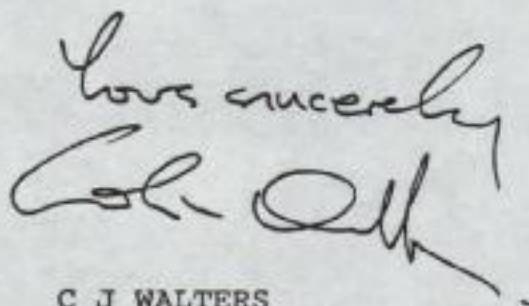 Yours sincerely
Colin
C J WALTERS